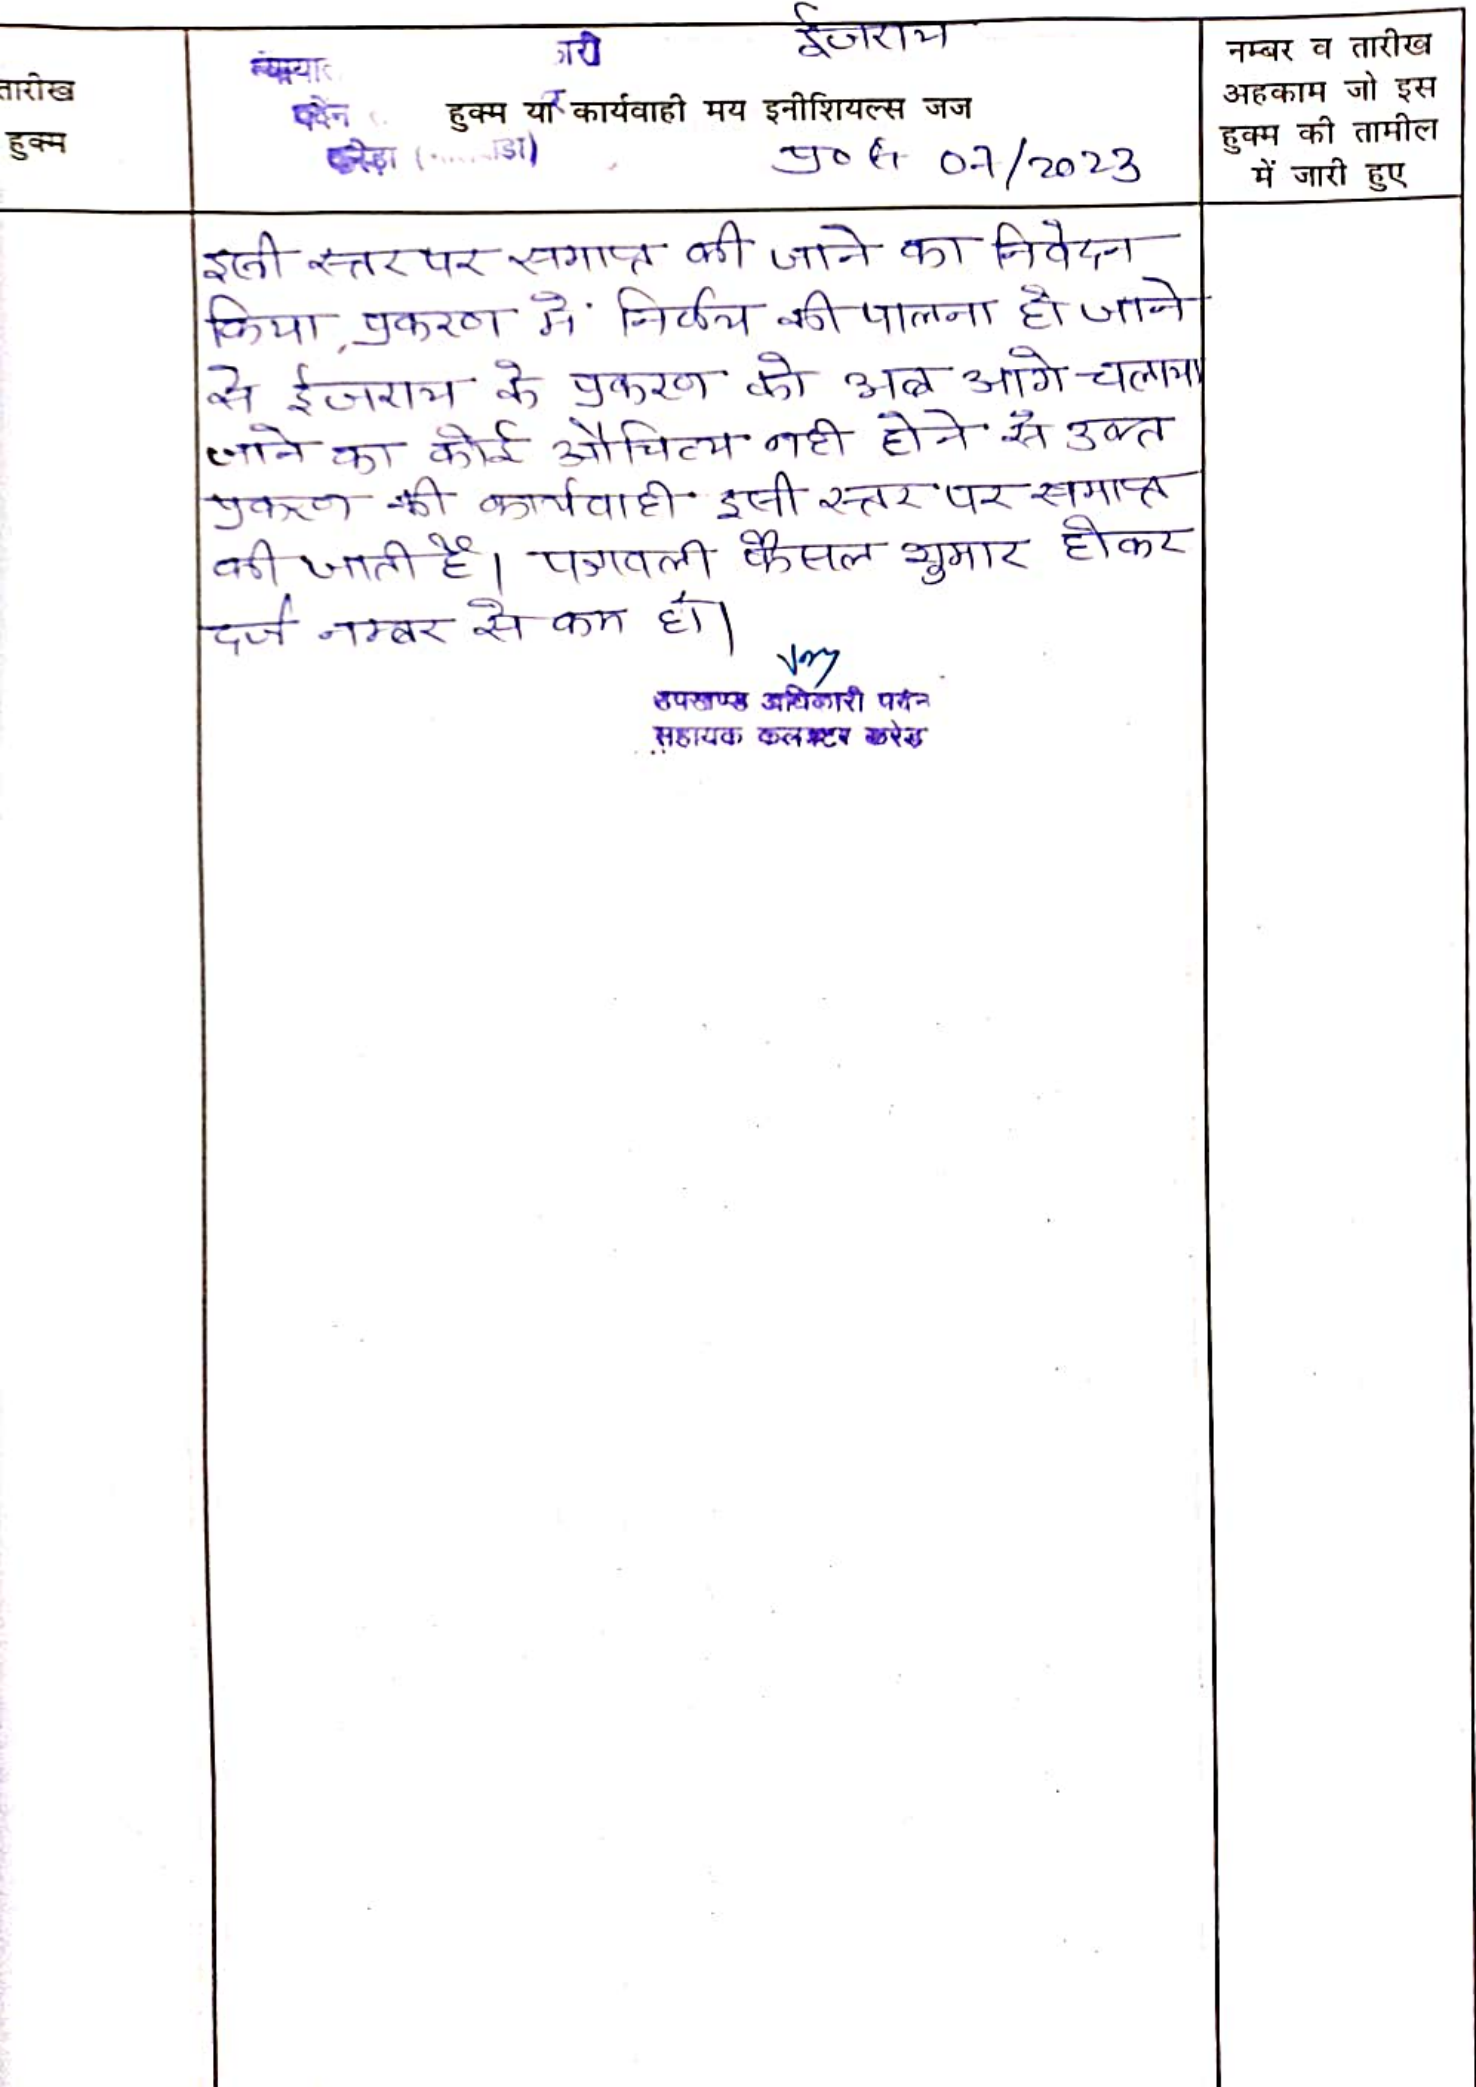 ईजराय
तारीख
हुक्म
हुक्म या कार्यवाही मय इनीशियल्स जज
प्र० सं 07/2023
नम्बर व तारीख
अहकाम जो इस
हुक्म की तामील
में जारी हुए
इसी स्तर पर समाप्त की जाने का निवेदन
किया, प्रकरण में निर्णय की पालना हो जाने
से ईजराय के प्रकरण को अब आगे चलाया
जाने का कोई औचित्य नही होने से उक्त
प्रकरण की कार्यवाही इसी स्तर पर समाप्त
की जाती है। पत्रावली फैसल शुमार होकर
दर्ज नम्बर से कम हो।
उपखण्ड अधिकारी पदेन
सहायक कलक्टर करेडा